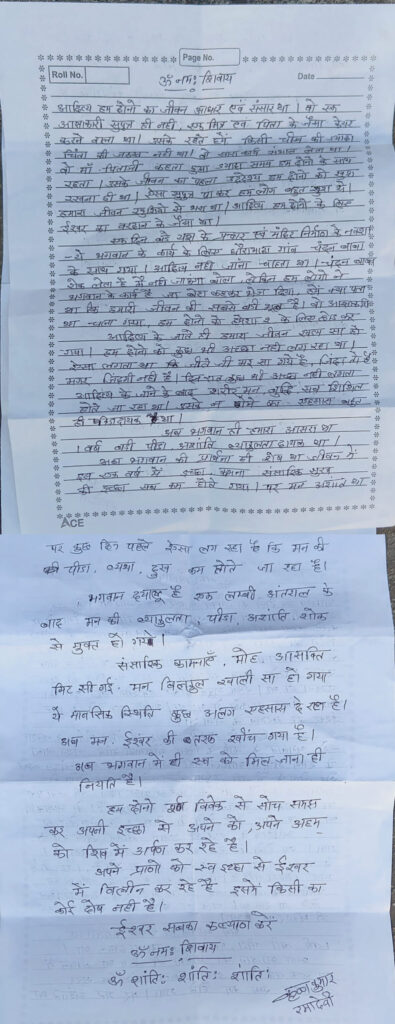 Page No.
Roll No.
Date
ॐ नमः शिवाय
आदित्य हम दोनो का जीवन आधार एवं संसार था। वो एक
आज्ञाकारी सुपुत्र ही नहीं, एक मित्र एवं पिता के जैसा केयर
करने वाला था। उसके रहते हमें किसी चीज की
चिंता की जरूरत नहीं था। वो सारा कार्य संभाल लेता था।
वो माँ पिताजी कहता हुआ ज्यादा समय हम दोनो के साथ
रहता। उसके जीवन का पहला उद्देश्य हम दोनो को खुश
रखना ही था। ऐसा सुपुत्र पा कर हम लोग बहुत खुश थे।
हमारा जीवन खुशियों से भरा था। आदित्य हम दोनो के लिए
ईश्वर का वरदान के जैसा था।
एक दिन के प्रचार एवं मंदिर निर्माण के
ये भगवान के कार्य के लिए गांव चंदन बाबा
के साथ गया। आदित्य नहीं जाना चाहता था। चंदन बाबा
नहीं जाऊंगा बोला, लेकिन हम दोनो ने
भगवान के कार्य है जा बेटा कहकर भेज दिया, हमें क्या पता
था कि हमारी जीवन की सबसे बड़ी भूल है। वो आज्ञाकारी
था चला गया, हम दोनो को हमेशा के लिए छोड़ कर
आदित्य के जाते ही हमारा जीवन खत्म सा हो
गया। हम दोनो को कुछ भी अच्छा नहीं लग रहा था।
ऐसा लगता था कि जीते जी मर सा गये हैं, जिंदा में है
मगर जिंदगी नहीं है। दिन रात कुछ भी अच्छा नहीं लगता
आदित्य के जाने के बाद शरीर मन, बुद्धि सब शिथिल
होते जा रहा था। इसके न होने का एहसास बहुत
ही पीड़ादायक था।
अब भगवान ही हमारा आसरा था
1 वर्ष यही पीड़ा अशांति व्याकुलता दायक था।
बस भगवान की प्रार्थना ही शेष था जीवन में
इस एक वर्ष में इच्छा कामना संसारिक सुख
की इच्छा सब कम होते गया। पर मन अशांत था
ACE
पर कुछ दिन पहले ऐसा लग रहा है कि मन की
की पीड़ा, व्यथा, दुख कम होते जा रहा है।
भगवान दयालु है एक लम्बी अंतराल के
बाद मन की व्याकुलता, पीड़ा, अशांति, शोक
से मुक्त हो गये।
संसारिक कामनाएँ, मोह, आसक्ति
मिट सी गई. मन बिलकुल खाली सा हो गया
ये मानसिक स्थिति कुछ अलग एहसास दे रहा है।
अब मन ईश्वर की तरफ खींच गया है।
अब भगवान में ही सब को मिल जाना ही
नियति है।
हम दोनो पूर्ण विवेक से सोच समझ
कर अपनी इच्छा से अपने को, अपने अहम
को शिव में अर्पण कर रहे है।
अपने प्राणो को स्व इच्छा से ईश्वर
में विलीन कर रहे है इसमें किसी का
कोई दोष नहीं है।
ईश्वर सबका कल्याण करें
ॐ नमः शिवाय
ॐ शांतिः शांतिः शांतिः
कृष्ण कुमार
रमादेवी